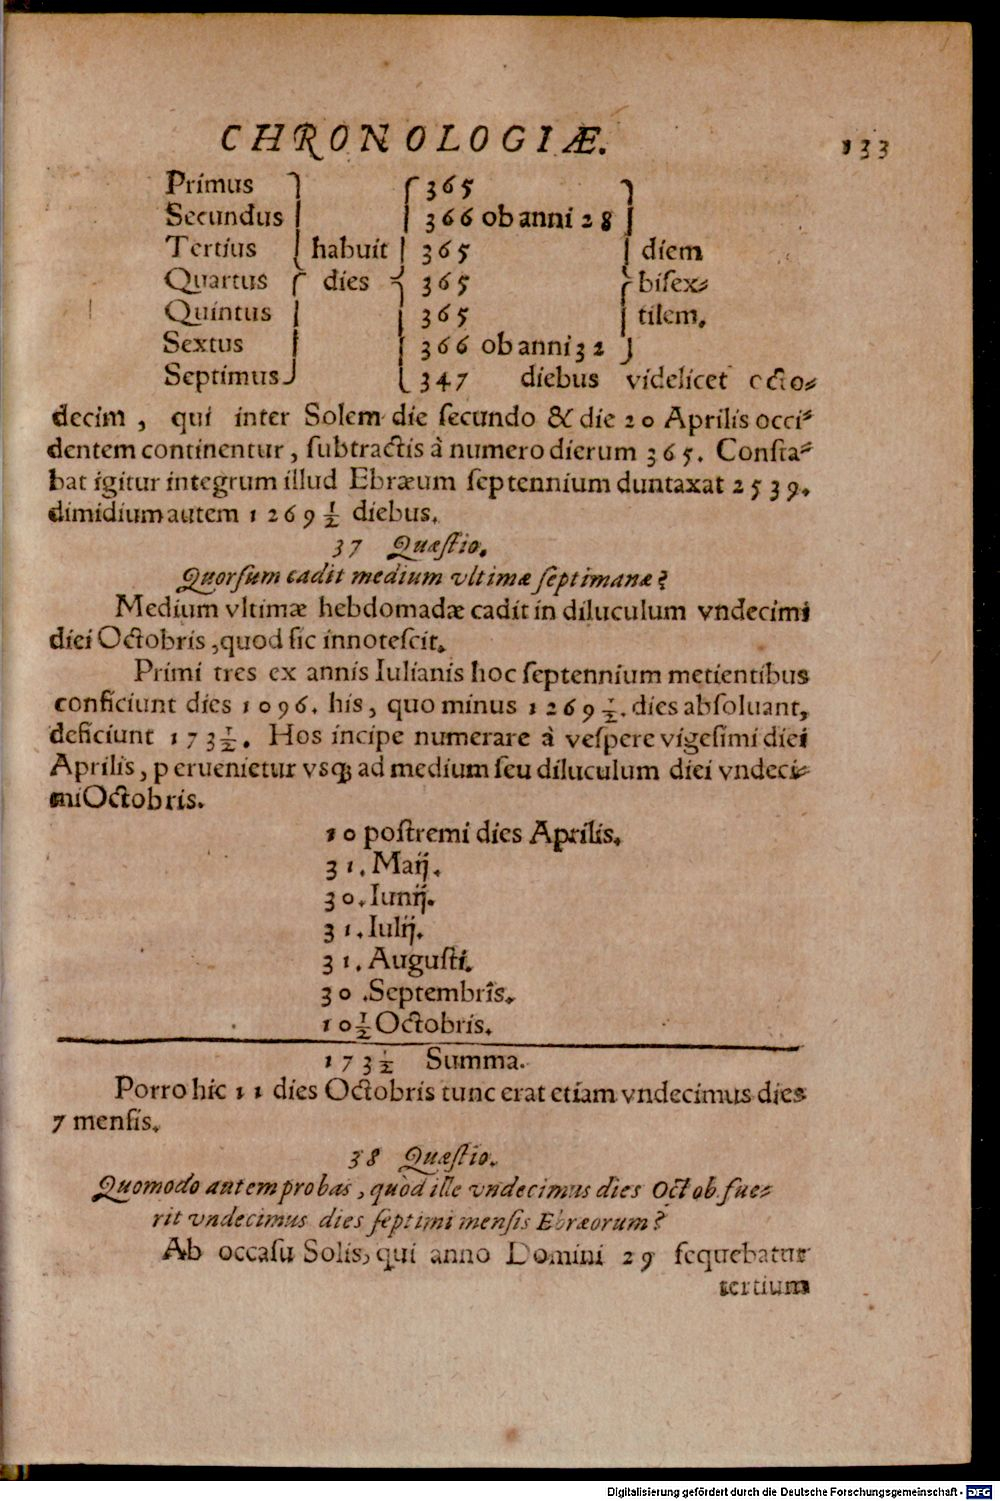 CHRONOLOGIÆ. 133
Primus 365
Secundus 366 ob anni 28
Tertius habuit 365 diem
Quartus dies 365 bisex-
Quintus 365 tilem.
Sextus 366 ob anni 32
Septimus 347 diebus videlicet octo-
decim, qui inter Solem die secundo & die 20 Aprilis occi-
dentem continentur, subtractis à numero dierum 365. Consta-
bat igitur integrum illud Ebræum septennium duntaxat 2539.
dimidium autem 1269 1/2 diebus.
37 Quæstio.
Quorsum cadit medium vltimæ septimanæ?
Medium vltimæ hebdomadæ cadit in diluculum vndecimi
diei Octobris, quod sic innotescit.
Primi tres ex annis Iulianis hoc septennium metientibus
conficiunt dies 1096. his, quo minus 1269 1/2. dies absoluant,
deficiunt 173 1/2. Hos incipe numerare à vespere vigesimi diei
Aprilis, peruenietur vsq; ad medium seu diluculum diei vndeci-
mi Octobris.
10 postremi dies Aprilis.
31. Maij.
30. Iunij.
31. Iulij.
31. Augusti.
30. Septembris.
10 1/2 Octobris.
173 1/2 Summa.
Porro hic 11 dies Octobris tunc erat etiam vndecimus dies
7 mensis.
38 Quæstio.
Quomodo autem probas, quòd ille vndecimus dies Octob. fue-
rit vndecimus dies septimi mensis Ebræorum?
Ab occasu Solis, qui anno Domini 29 sequebatur
tertium
Digitalisierung gefördert durch die Deutsche Forschungsgemeinschaft - DFG